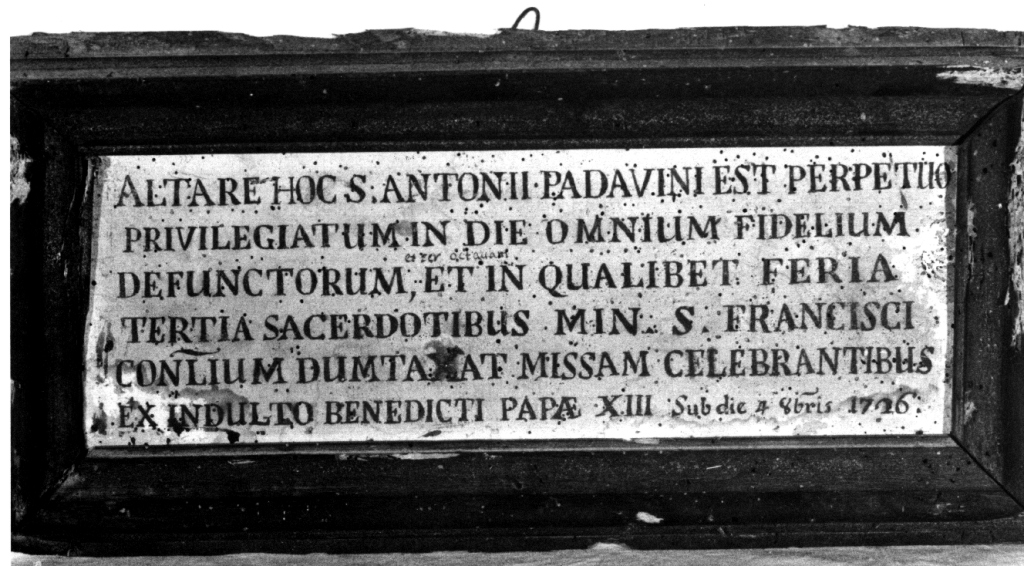 ALTARE HOC S. ANTONII PADAVINI EST PERPETUO
PRIVILEGIATUM IN DIE OMNIUM FIDELIUM
et per octavam
DEFUNCTORUM, ET IN QUALIBET FERIA
TERTIA SACERDOTIBUS MIN. S. FRANCISCI
CONLIUM DUMTAXAT MISSAM CELEBRANTIBUS
EX INDULTO BENEDICTI PAPÆ XIII Sub die 4 8bris 1726.